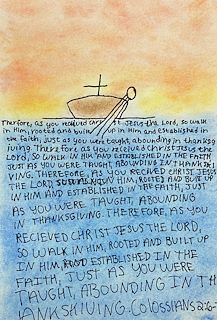 Therefore, as you recieved Christ Jesus the Lord, so walk
in Him, rooted and built up in Him and established in
the faith, just as you were taught, abounding in thanksg
iving. Therefore, as you recieved Christ Jesus the
Lord, SO WALK IN HIM AND ESTABLISHED IN THE FAITH
JUST AS YOU WERE TAUGHT, ABOUNDING IN THANKSGI
VING. THEREFORE, AS YOU RECIEVED CHRIST JESUS
THE LORD, SO WALK IN HIM, ROOTED AND BUILT UP
IN HIM AND ESTABLISHED IN THE FAITH, JUST
AS YOU WERE TAUGHT, ABOUNDING
IN THANKSGIVING. THEREFORE, AS YOU
RECIEVED CHRIST JESUS THE LORD,
SO WALK IN HIM, ROOTED AND BUILT UP
IN HIM, ESTABLISHED IN THE
FAITH, JUST AS YOU WERE
TAUGHT, ABOUNDING IN TH
ANKSGIVING. COLOSSIANS 2:6-